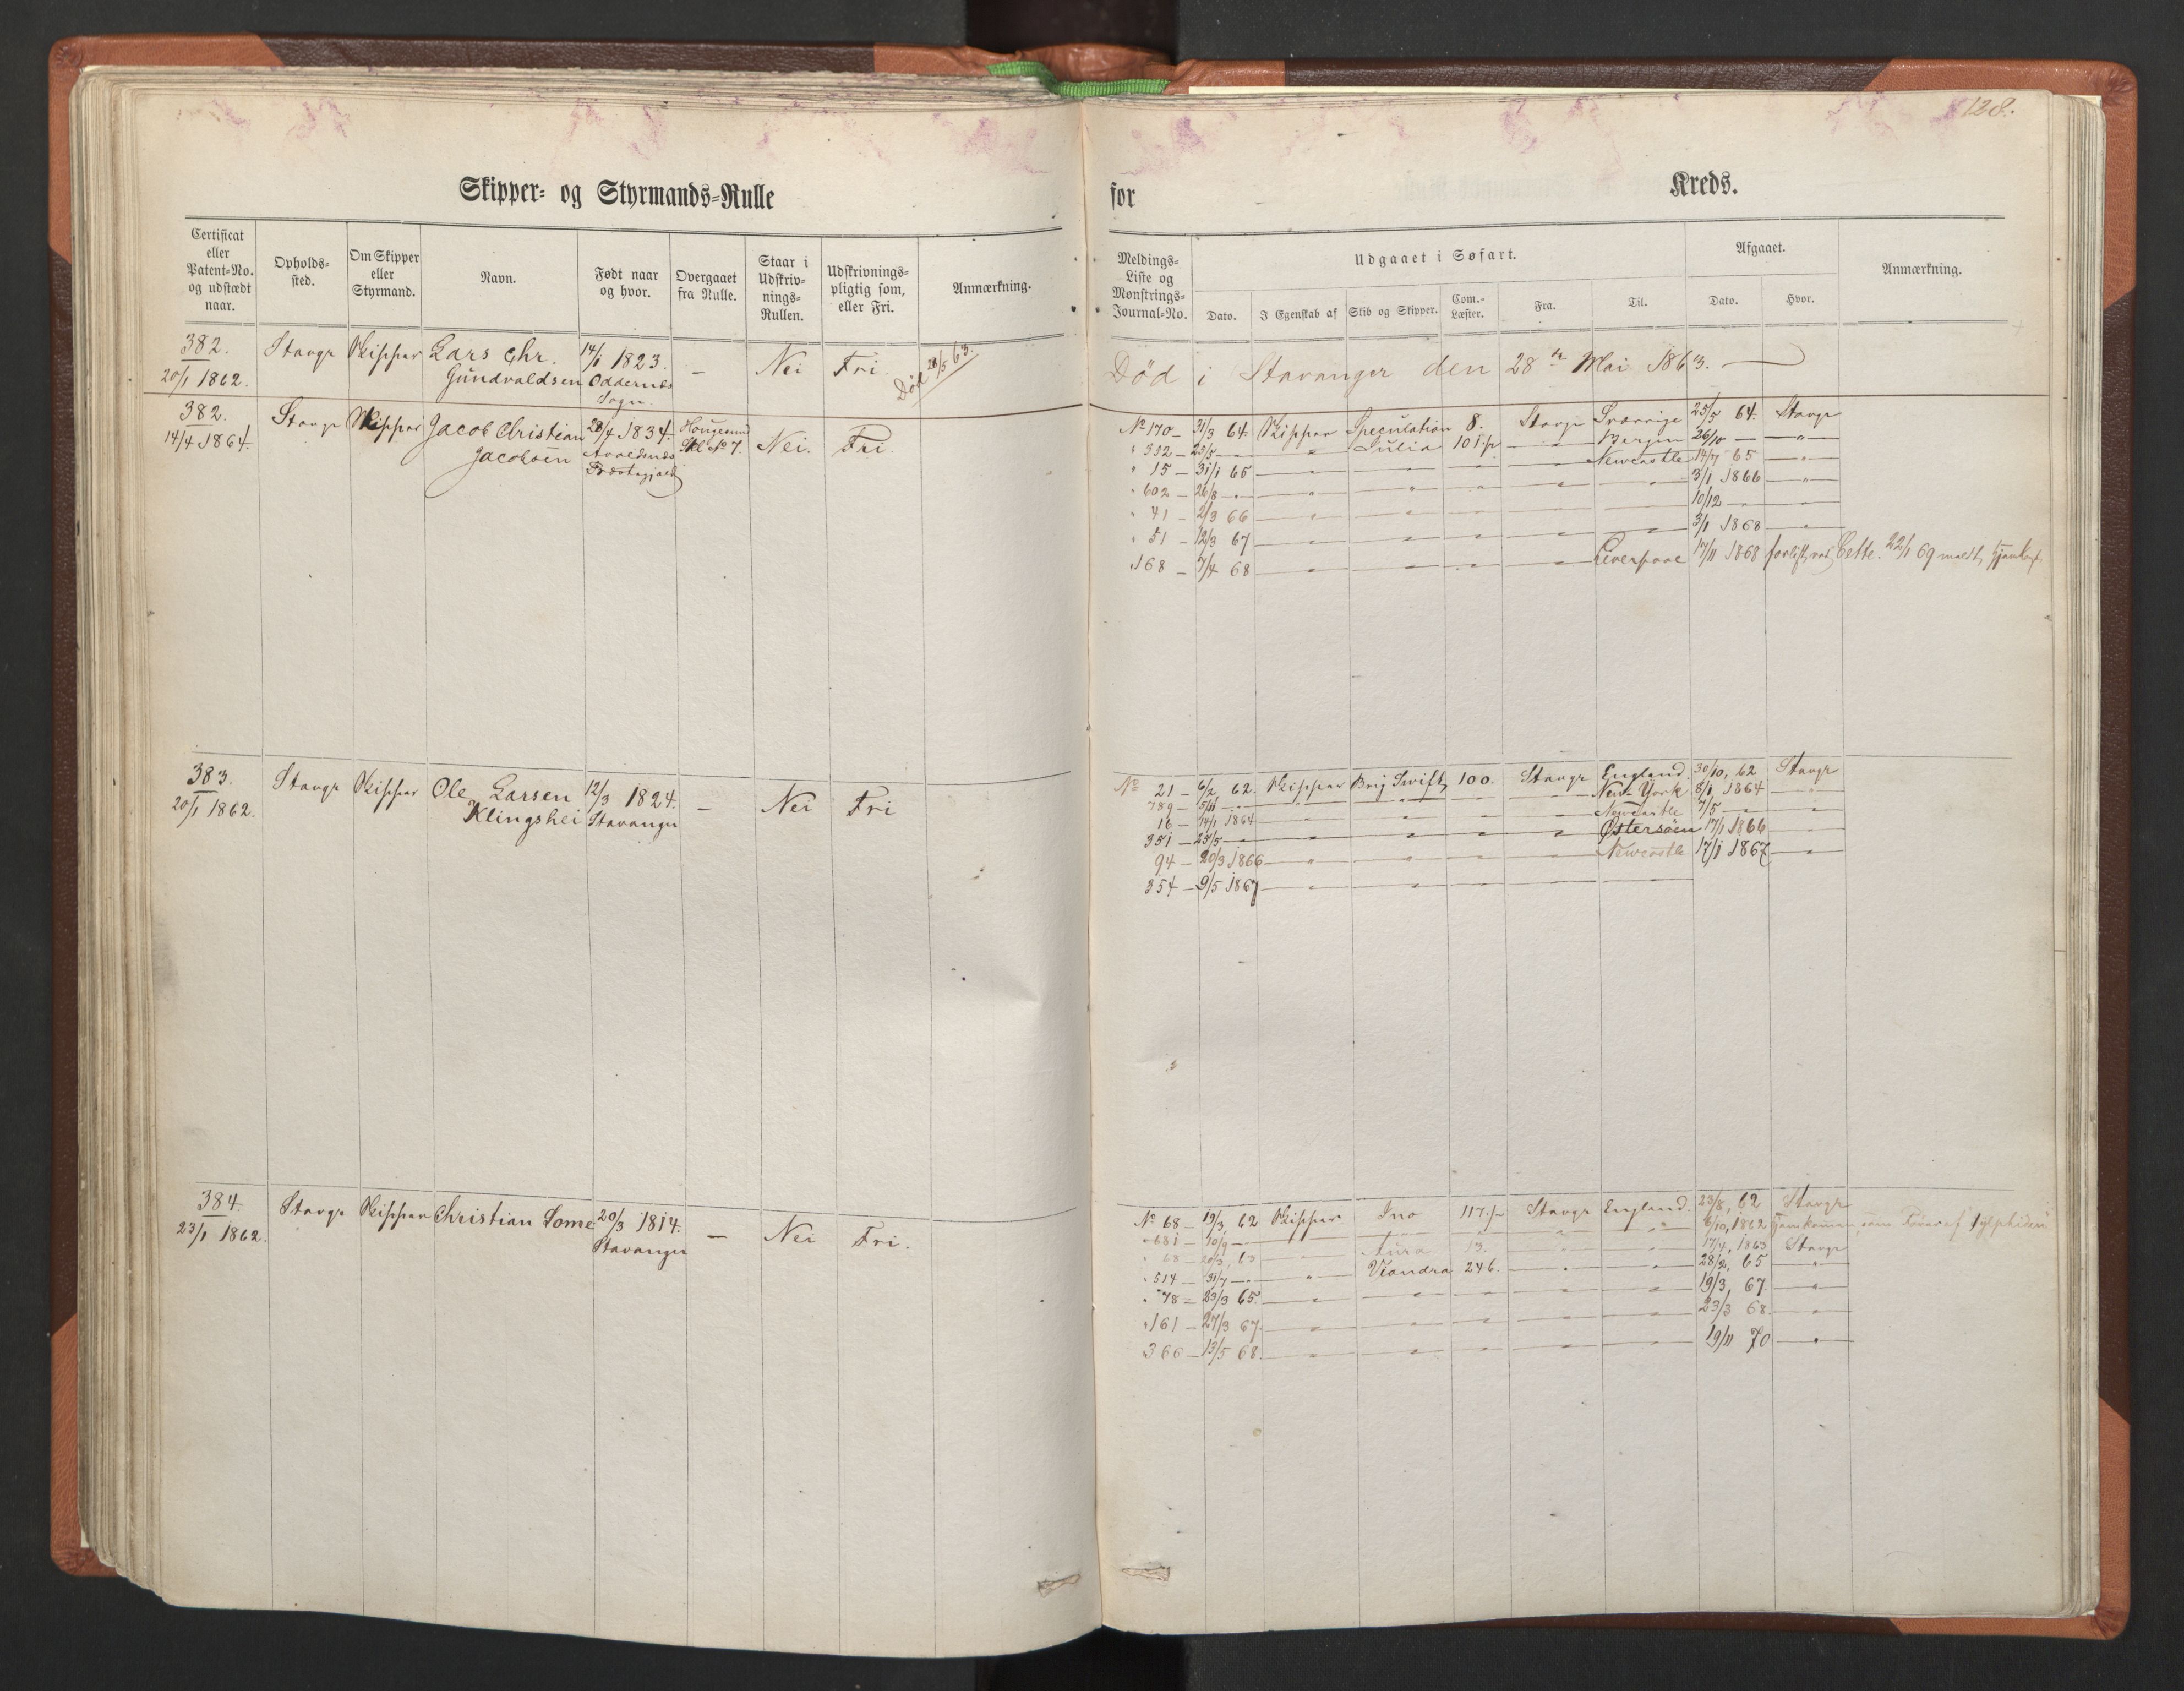 128.
Skipper- og Styrmands-Rulle for Kreds.
Certificat eller Patent-No. og udstædt naar. Opholds-sted. Om Skipper eller Styrmand. Navn. Født naar og hvor. Overgaaet fra Rulle. Staar i Udskriv-nings-Rullen. Udskrivnings-pligtig som, eller Fri. Anmærkning.
Meldings-Liste og Mønstrings-Journal-No. Udgaaet i Søfart. Afgaaet. Anmærkning.
Dato. I Egenskab af Skib og Skipper. Com.-Læster. Fra. Til. Dato. Hvor.
382. Stavgr Skipper Lars Chr. 14/1 1823. — Nei Fri. Død 28/5 63.
20/1 1862. Gundvaldsen Oddernes
Sogn.
Død i Stavanger den 28n Mai 1863. —
382. Stavgr Skipper Jacob Christian 28/4 1834. Hougesund Nei. Fri.
14/4 1864. Jacobsen Avaldsnes No 7.
Præstegjæld
No 170 — 31/3 64. Skipper Speculation 8. Stavgr Sværrige 25/5 64. Stavgr
" 332 — 25/5 — " Julia 101 — Bergen 26/10 — — " —
" 15 — 31/1 65 — " — Newcastle 14/7 65 — " —
" 602 — 26/8 — " — " — 3/1 1866 — " —
" 41 — 2/3 66 — " — " — 10/12 — " —
" 51 — 12/3 67 — " — " — 3/1 1868 — " —
" 168 — 7/4 68 — " — " — Liverpool 17/11 1868 forlist, ved Cette. 22/1 69 meldt,
383. Stavgr Skipper Ole Larsen 12/3 1824. — Nei Fri
20/1 1862. Klingshei Stavanger
No 21 — 6/2, 62. Skipper Brig Swift, 100. Stavgr England. 30/10, 62 Stavgr
789 — 5/11 — " — New-York 8/1 1864 — " —
16 — 14/1 1864 — " — Newcastle 7/5 — " —
351 — 25/5 — " — Østersöen 17/1 1866 — " —
94 — 20/3 1866 — " — Newcastle 17/1 1867 — " —
354 — 9/5 1867 — " — " —
384. Stavgr Skipper Christian Lome 20/3 1814. — Nei Fri.
23/1 1862. Stavanger
No 68 — 19/3, 62 Skipper Ino 117 Stavgr England. 23/8, 62 Stavgr
" 681 — 10/9 — " — 6/10, 1862 hjemkommen som af Sylphiden
" 68 — 20/3, 63 — " Aura 13. — " — 17/4, 1863 Stavgr
" 514 — 31/7 — " — 246. — " — 65 — " —
" 78 — 23/3 65. — " — " — 19/3, 67. — " —
" 161 — 27/3 67. — " — " — 23/3 68. — " —
366 — 13/5 68. — " — " — 19/11 70 — " —